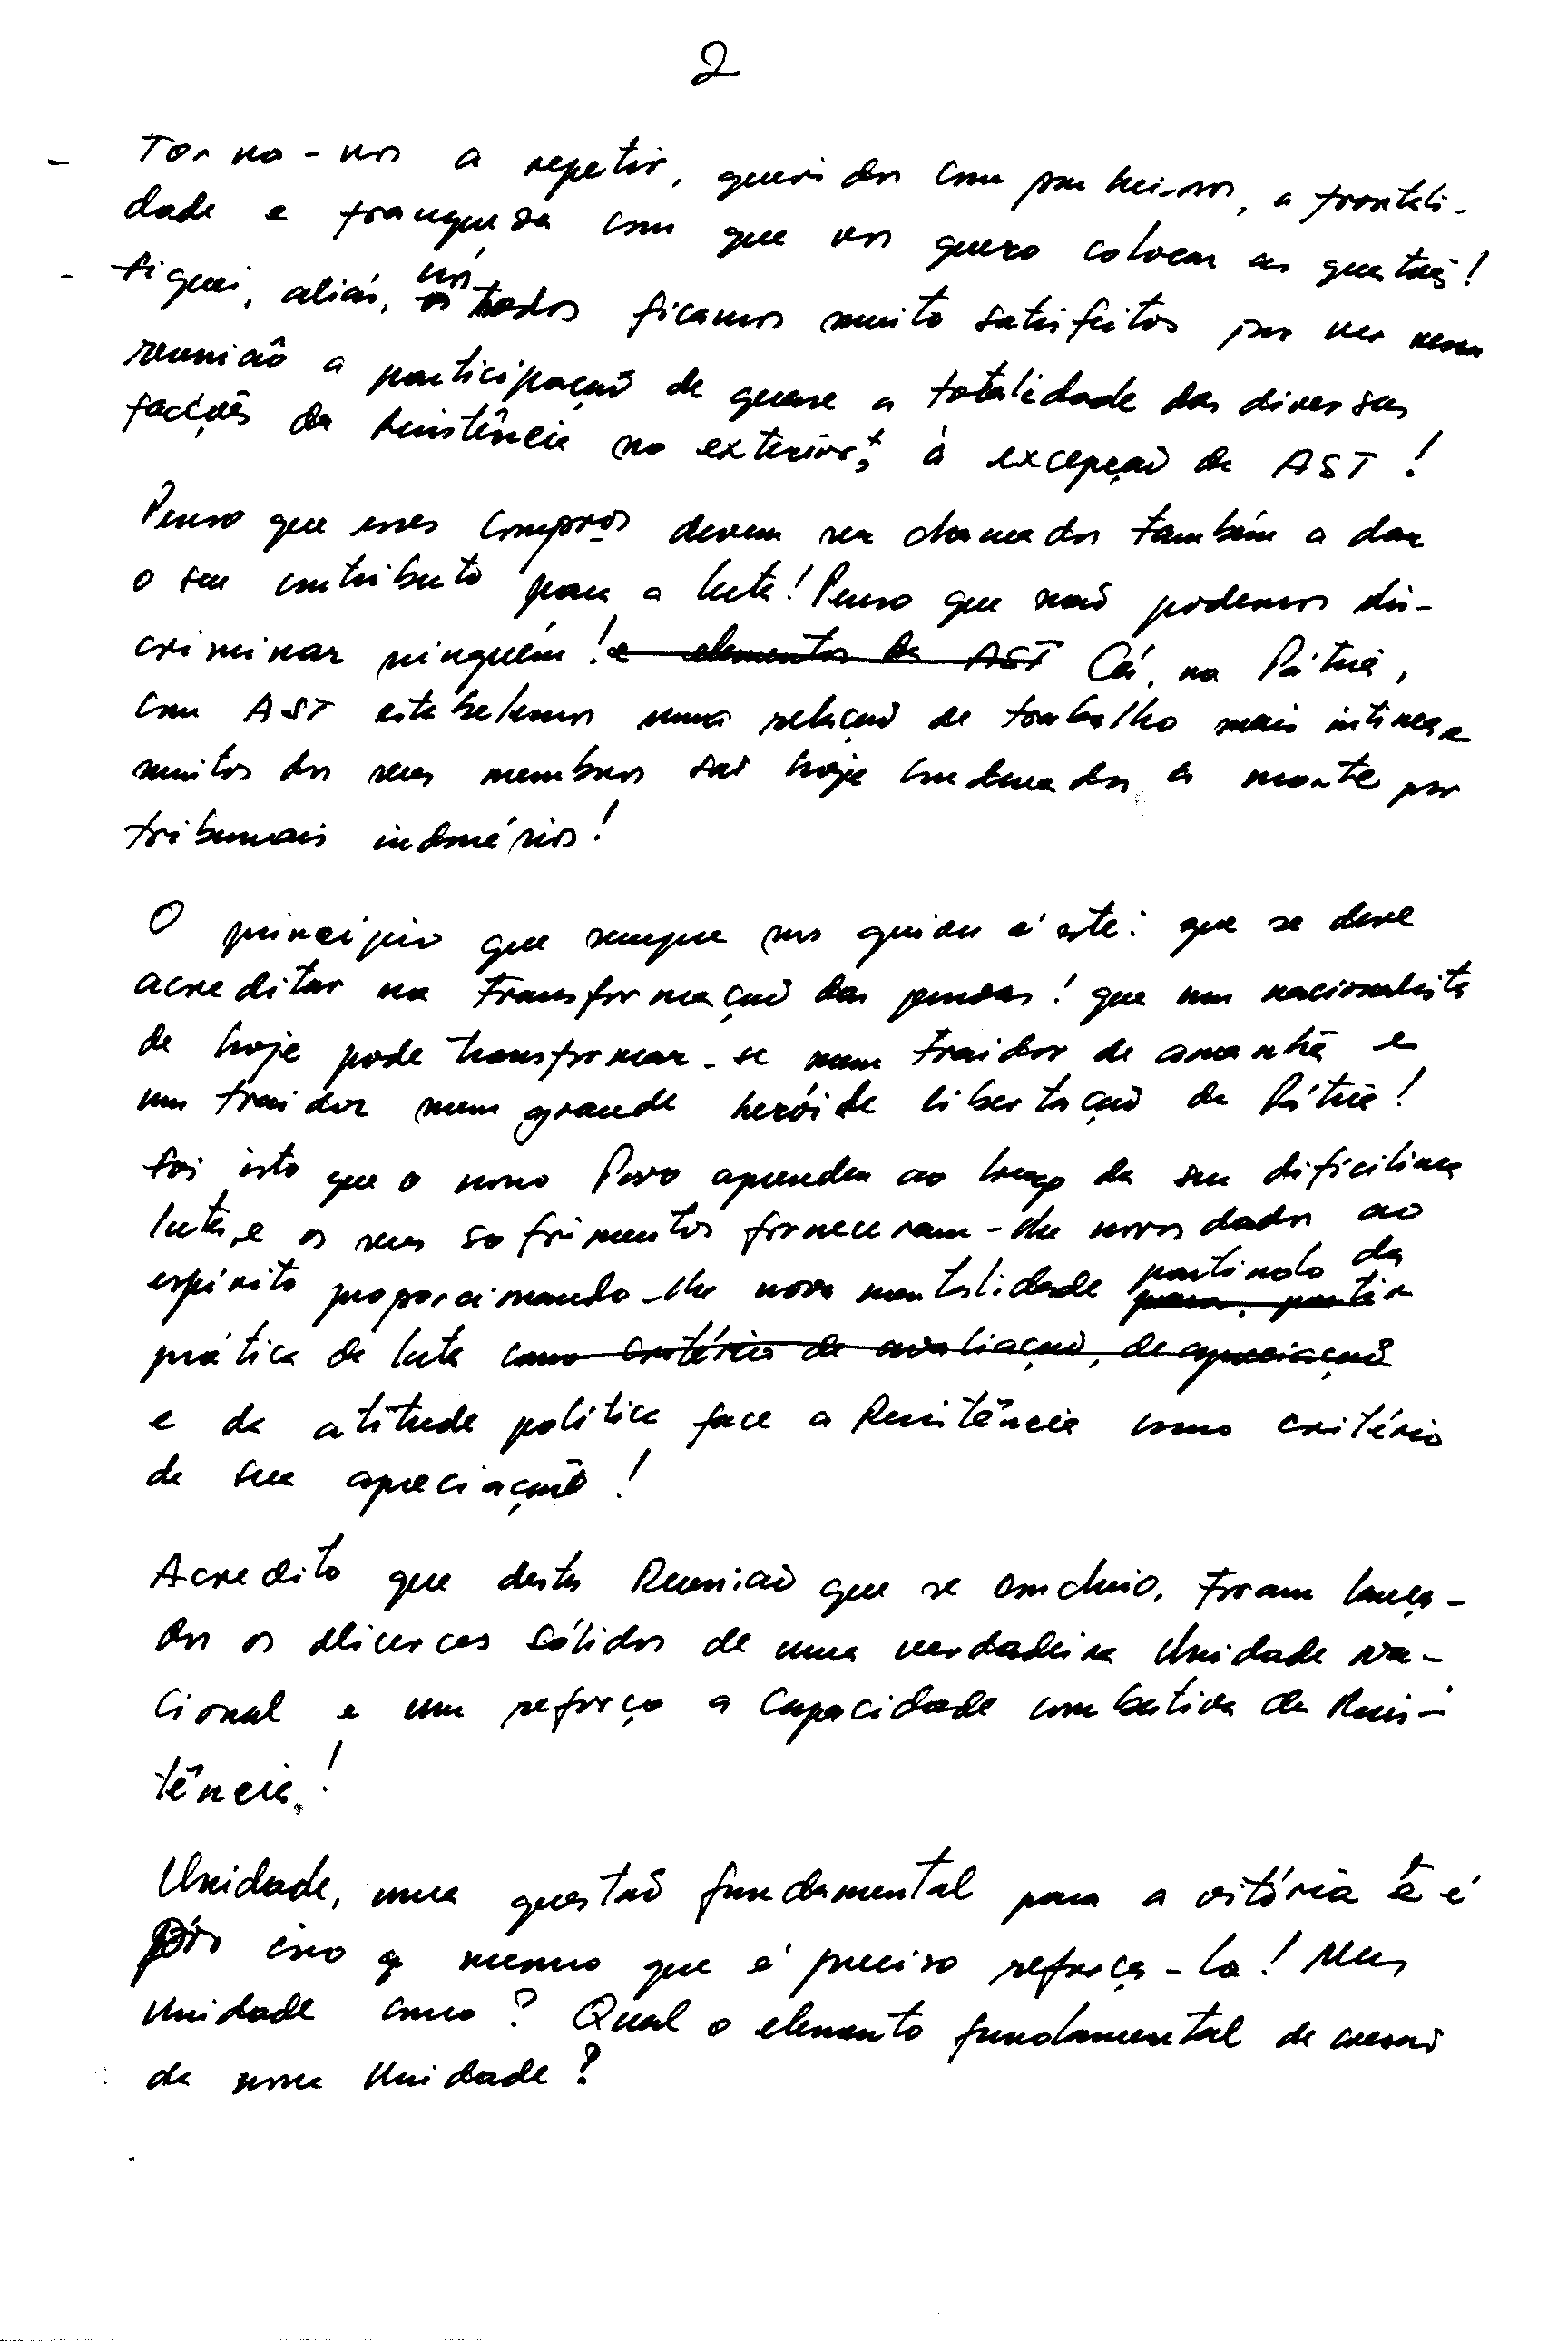 2
- Torno-vos a repetir, queridos companheiros, a frontali-
dade e franqueza com que vos quero colocar as questões!
- Fiquei, aliás, nós todos ficamos muito satisfeitos por ver nessa
reunião a participação de quase a totalidade das diversas
facções da Resistência no exterior, à excepção da AST!
Penso que esses compros devem ser chamados também a dar
o seu contributo para a luta! Penso que não podemos dis-
criminar ninguém! e elementos da AST Cá, na Pátria,
com AST estabelemos uma relação de trabalho mais intima e
muitos dos seus membros são hoje condenados à morte por
tribunais indonésios!
O princípio que sempre nos guiou é este: que se deve
acreditar na transformação das pessoas! que um nacionalista
de hoje pode transformar-se num traidor de amanhã e
um traidor num grande herói de libertação da Pátria!
Foi isto que o nosso Povo aprendeu ao longo da sua dificílima
luta, e os seus sofrimentos forneceram-lhe novos dados ao
espírito proporcionando-lhe nova mentalidade partindo da
para, partir
prática de luta como critério de avaliação, de apreciação
e da atitude política face a Resistência como critério
de sua apreciação!
Acredito que desta Reunião que se concluiu, foram lança-
dos os alicerces sólidos de uma verdadeira Unidade Na-
cional e um reforço a capacidade combativa da Resis-
tência!
Unidade, uma questão fundamental para a vitória é
por isso mesmo que é preciso reforça-la! Mas,
Unidade como? Qual o elemento fundamental de coesão
da nossa Unidade?